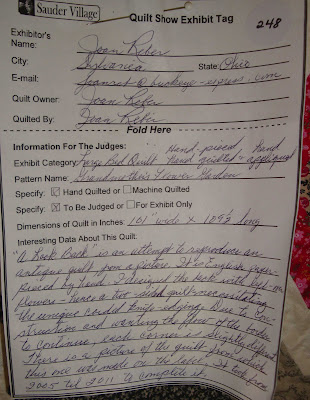 Sauder Village
Quilt Show Exhibit Tag
248
Exhibitor's
Name: Joan Reber
City: Sylvania State: Ohio
E-mail: jeanret@buckeye-express.com
Quilt Owner: Joan Reber
Quilted By: Joan Reber
Fold Here
Information For The Judges: Hand-pieced, Hand
Exhibit Category: Large Bed Quilt Hand quilted - appliqued
Pattern Name: Grandmother's Flower Garden
Specify: Hand Quilted or Machine Quilted
Specify: To Be Judged or For Exhibit Only
Dimensions of Quilt in Inches: 101" wide X 109 1/2 long
Interesting Data About This Quilt:
"A Look Back" is an attempt to reproduce an
antique quilt from a picture. It is English paper
pieced by hand. I designed the
flowers - hence a hot-sided quilt necessitating
the unique corded knife-edging. Due to con-
struction and wanting the flow of the border
to continue, each corner is slightly different.
There is a picture of the quilt from which
this one was made on the label. It took from
2005 til 2011 to complete it.